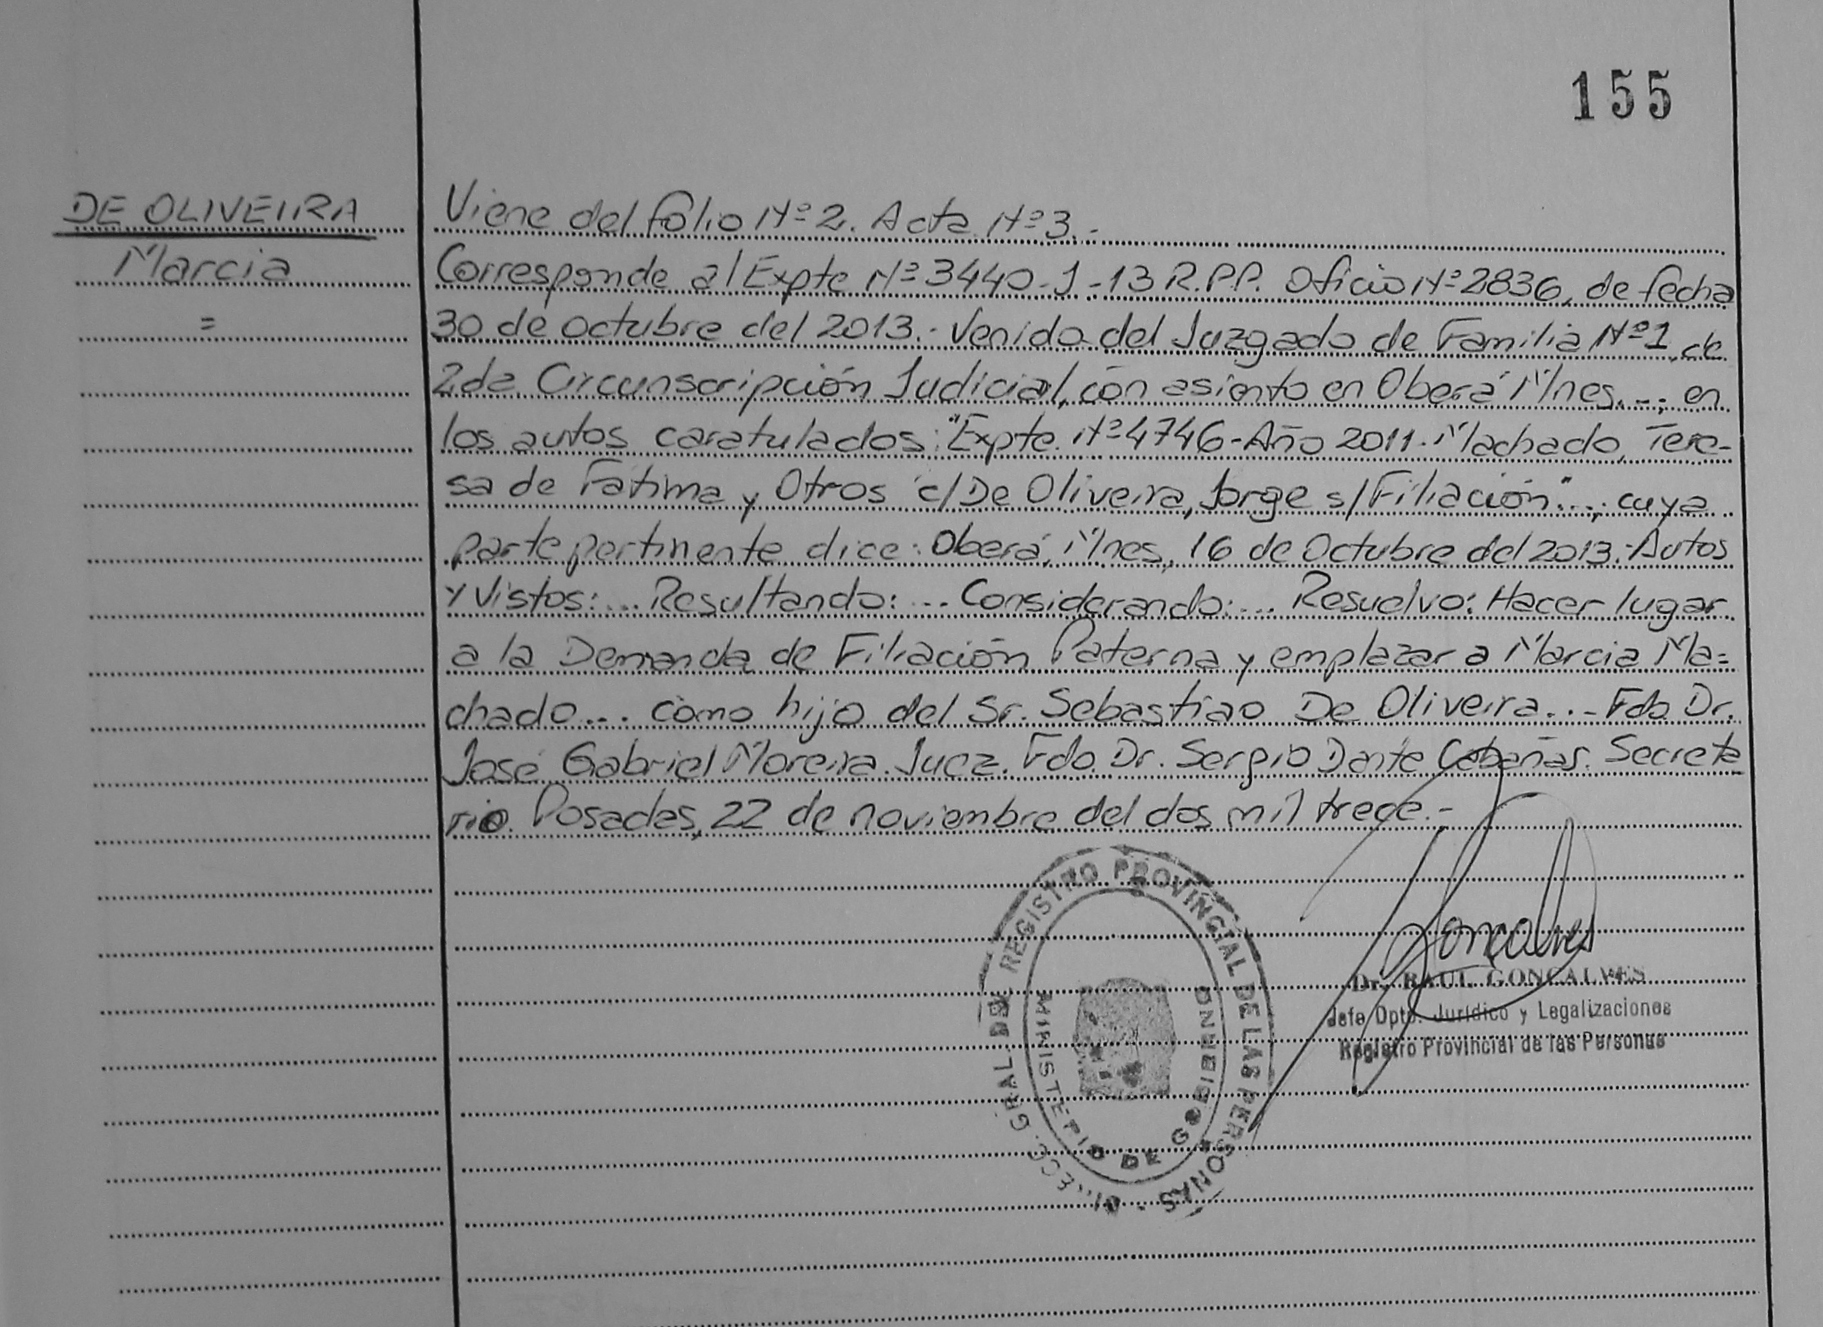 155
DE OLIVEIRA
Marcia
=
Viene del folio Nº 2. Acta Nº 3.-
Corresponde al Expte Nº 3440-J-13 R.P.P. Oficio Nº 2836, de fecha
30 de octubre del 2013.- Venido del Juzgado de Familia Nº 1, de
2da Circunscripción Judicial, con asiento en Oberá Mnes...; en
los autos caratulados: "Expte. Nº 4746-Año 2011. Machado, Tere-
sa de Fatima y Otros c/ De Oliveira, Jorge s/ Filiación"...; cuya
parte pertinente dice: Oberá, Mnes, 16 de Octubre del 2013.- Autos
y Vistos:... Resultando:... Considerando:... Resuelvo: Hacer lugar
a la Demanda de Filiación Paterna y emplazar a Marcia Ma=
chado... como hijo del Sr. Sebastiao De Oliveira...- Fdo Dr.
José Gabriel Moreira. Juez. Fdo. Dr. Sergio Dante Cabañas. Secreta
rio. Posadas, 22 de noviembre del dos mil trece.-
REGISTRO PROVINCIAL DE LAS PERSONAS
GRAL DEL
MINISTERIO DE GOBIERNO
Goncalves
Dr. RAUL GONCALVES
Jefe Dpto. Jurídico y Legalizaciones
Registro Provincial de las Personas